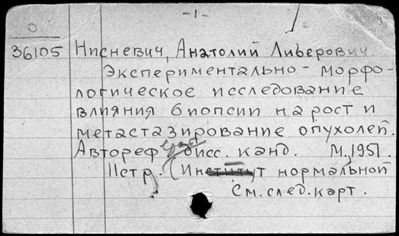 - 1 -
0
36105 Нисневич, Анатолий Ливерович.
Экспериментально-морфо-
логическое исследование
влияния биопсии на рост и
метастазирование опухолей.
Автореф. дисс. канд. М, 1951.
Петр. (Институт нормальной
См. след. карт.